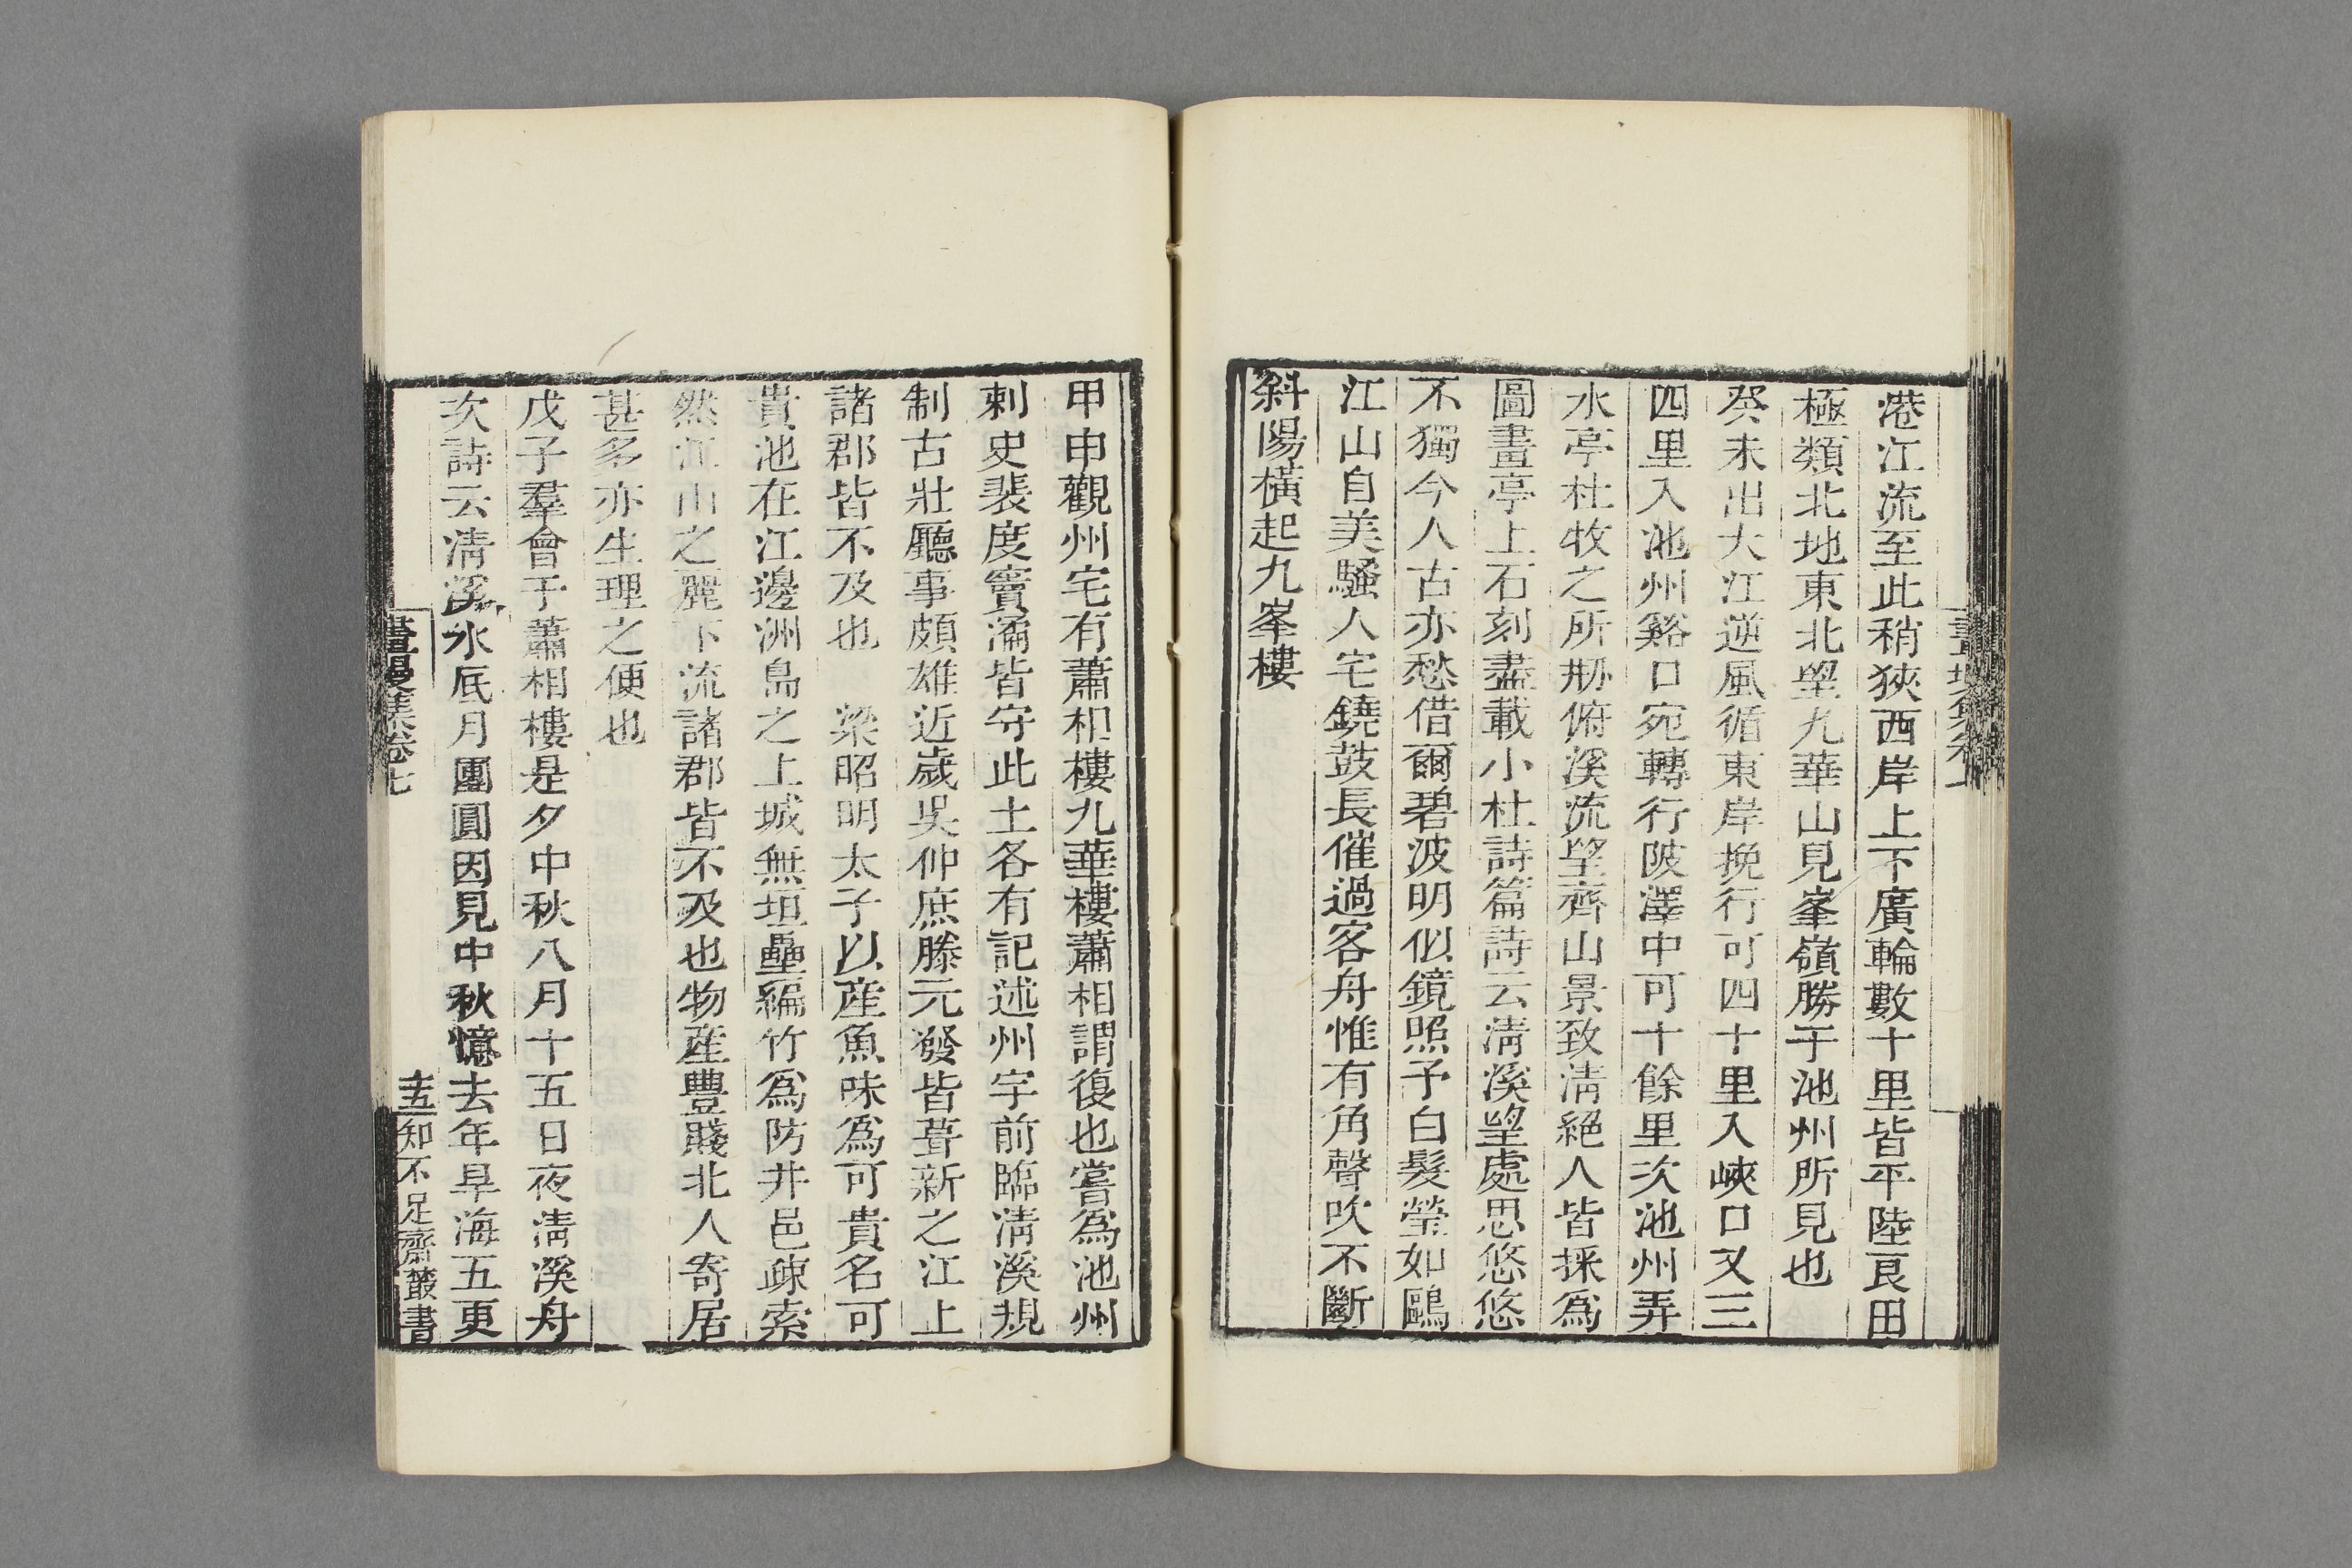 港江流至此稍狹西岸上下廣輪數十里皆平陸良田
極類北地東北望九華山見峯嶺勝于池州所見也
癸未出大江逆風循東岸挽行可四十里入峽口又三
四里入池州谿口宛轉行陂澤中可十餘里次池州弄
水亭杜牧之所剏俯溪流望齊山景致淸絕人皆採爲
圖畫亭上石刻盡載小杜詩篇詩云淸溪望處思悠悠
不獨今人古亦愁借爾碧波明似鏡照予白髮瑩如鷗
江山自美騷人宅鐃鼓長催過客舟惟有角聲吹不斷
斜陽橫起九峯樓
甲申觀州宅有蕭相樓九華樓蕭相謂復也嘗爲池州
刺史裴度竇潏皆守此土各有記述州宇前臨淸溪規
制古壯廳事頗雄近歲吳仲庶滕元發皆葺新之江上
諸郡皆不及也　梁昭明太子以産魚味爲可貴名可
貴池在江邊洲島之上城無垣壘編竹爲防井邑疎索
然江山之麗下流諸郡皆不及也物産豐賤北人寄居
甚多亦生理之便也
戊子羣會于蕭相樓是夕中秋八月十五日夜淸溪舟
次詩云淸溪水底月團圓因見中秋憶去年旱海五更
畫墁集卷七　十五　知不足齋叢書